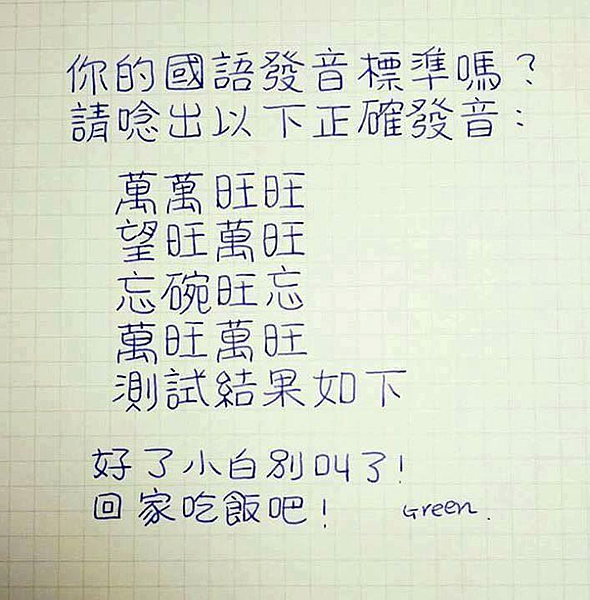 你的國語發音標準嗎？
請唸出以下正確發音：
萬萬旺旺
望旺萬旺
忘碗旺忘
萬旺萬旺
測試結果如下
好了小白別叫了！
回家吃飯吧！ Green.